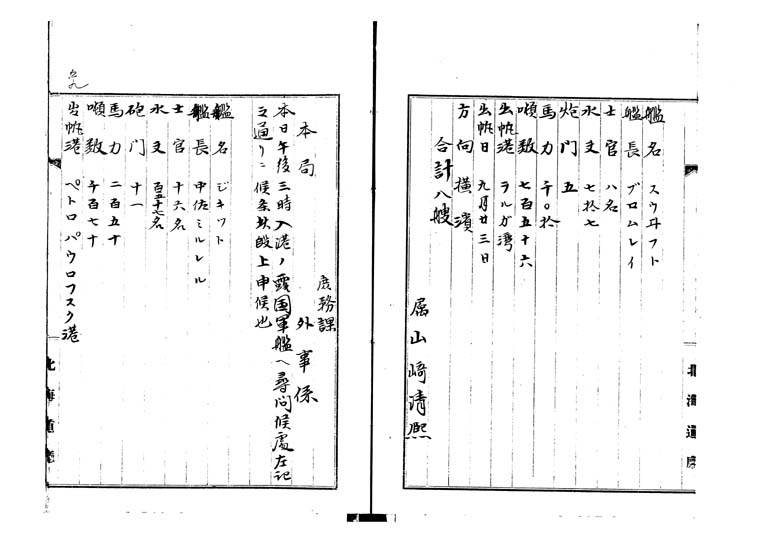 艦名 スウヰフト
艦長 ブロムレイ
士官 八名
水夫 七拾七
炮門 五
馬力 千〇拾
噸数 七百五十六
出帆港 ラルガ湾
出帆日 九月廿三日
方向 横濱
合計八艘
属山崎清熙
北海道庁
庶務課
本局 外事係
本日午後三時入港ノ露国軍艦ヘ尋問候處左記
之通リニ候条此段上申候也
艦名 ジキット
艦長 中佐ミルレル
士官 十六名
水夫 百五十七名
砲門 十一
馬力 二百五十
噸数 千百七十
出帆港 ペトロパウロフスク港
北海道庁